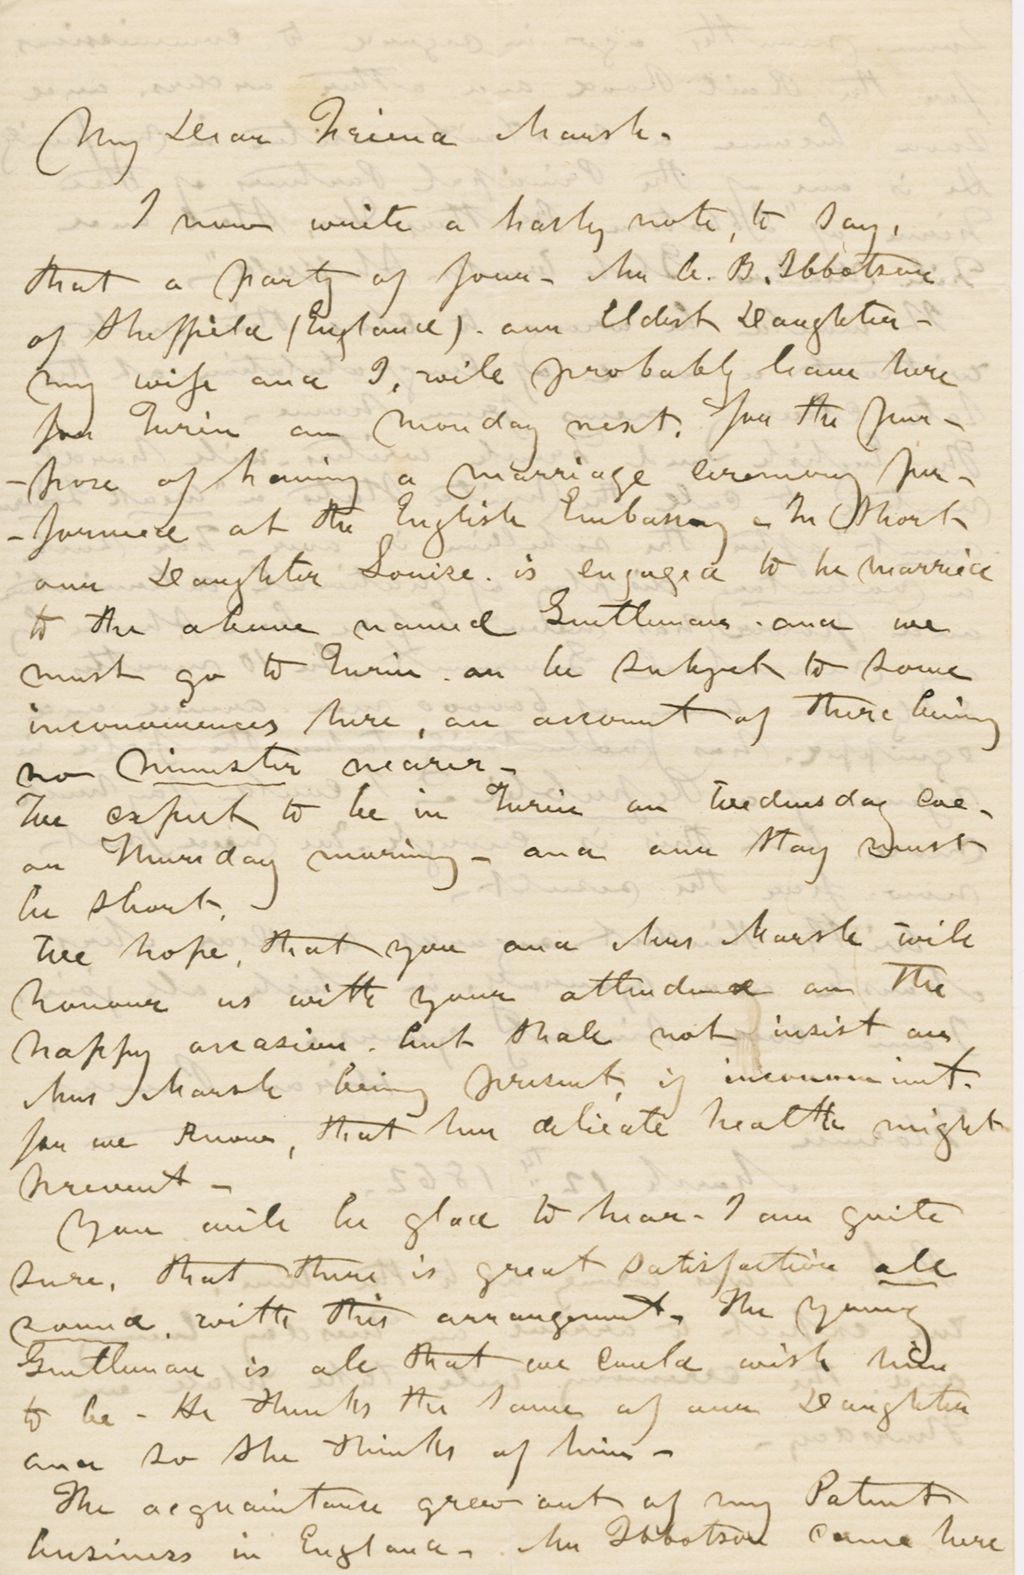 My Dear Friend Marsh -
I now write a hasty note, to say,
that a party of four - Mr A. B. Ibbotson
of Sheffield (England). our Eldest Daughter -
my wife and I, will probably leave here
for Turin on Monday next. for the pur-
-pose of having a marriage ceremony per-
-formed at the English Embassy - In Short
our Daughter Louise. is engaged to be married
to the above named Gentleman. and we
must go to Turin. or be subject to some
inconveniences here, on account of there being
no Minister nearer -
We expect to be in Turin on Wednesday Eve -
or Thursday morning - and our Stay must
be short.
We hope, that you and Mrs Marsh will
honour us with your attendance on the
happy occasion. but shall not insist on
Mrs Marsh being present, if inconvenient.
for we know, that her delicate health might
prevent -
You will be glad to hear - I am quite
sure, that there is great satisfaction all
round, with this arrangement. The young
Gentleman is all that we could wish him
to be - He thinks the same of our Daughter
and so she thinks of him -
The acquaintance grew out of my Patent
business in England - Mr Ibbotson came here